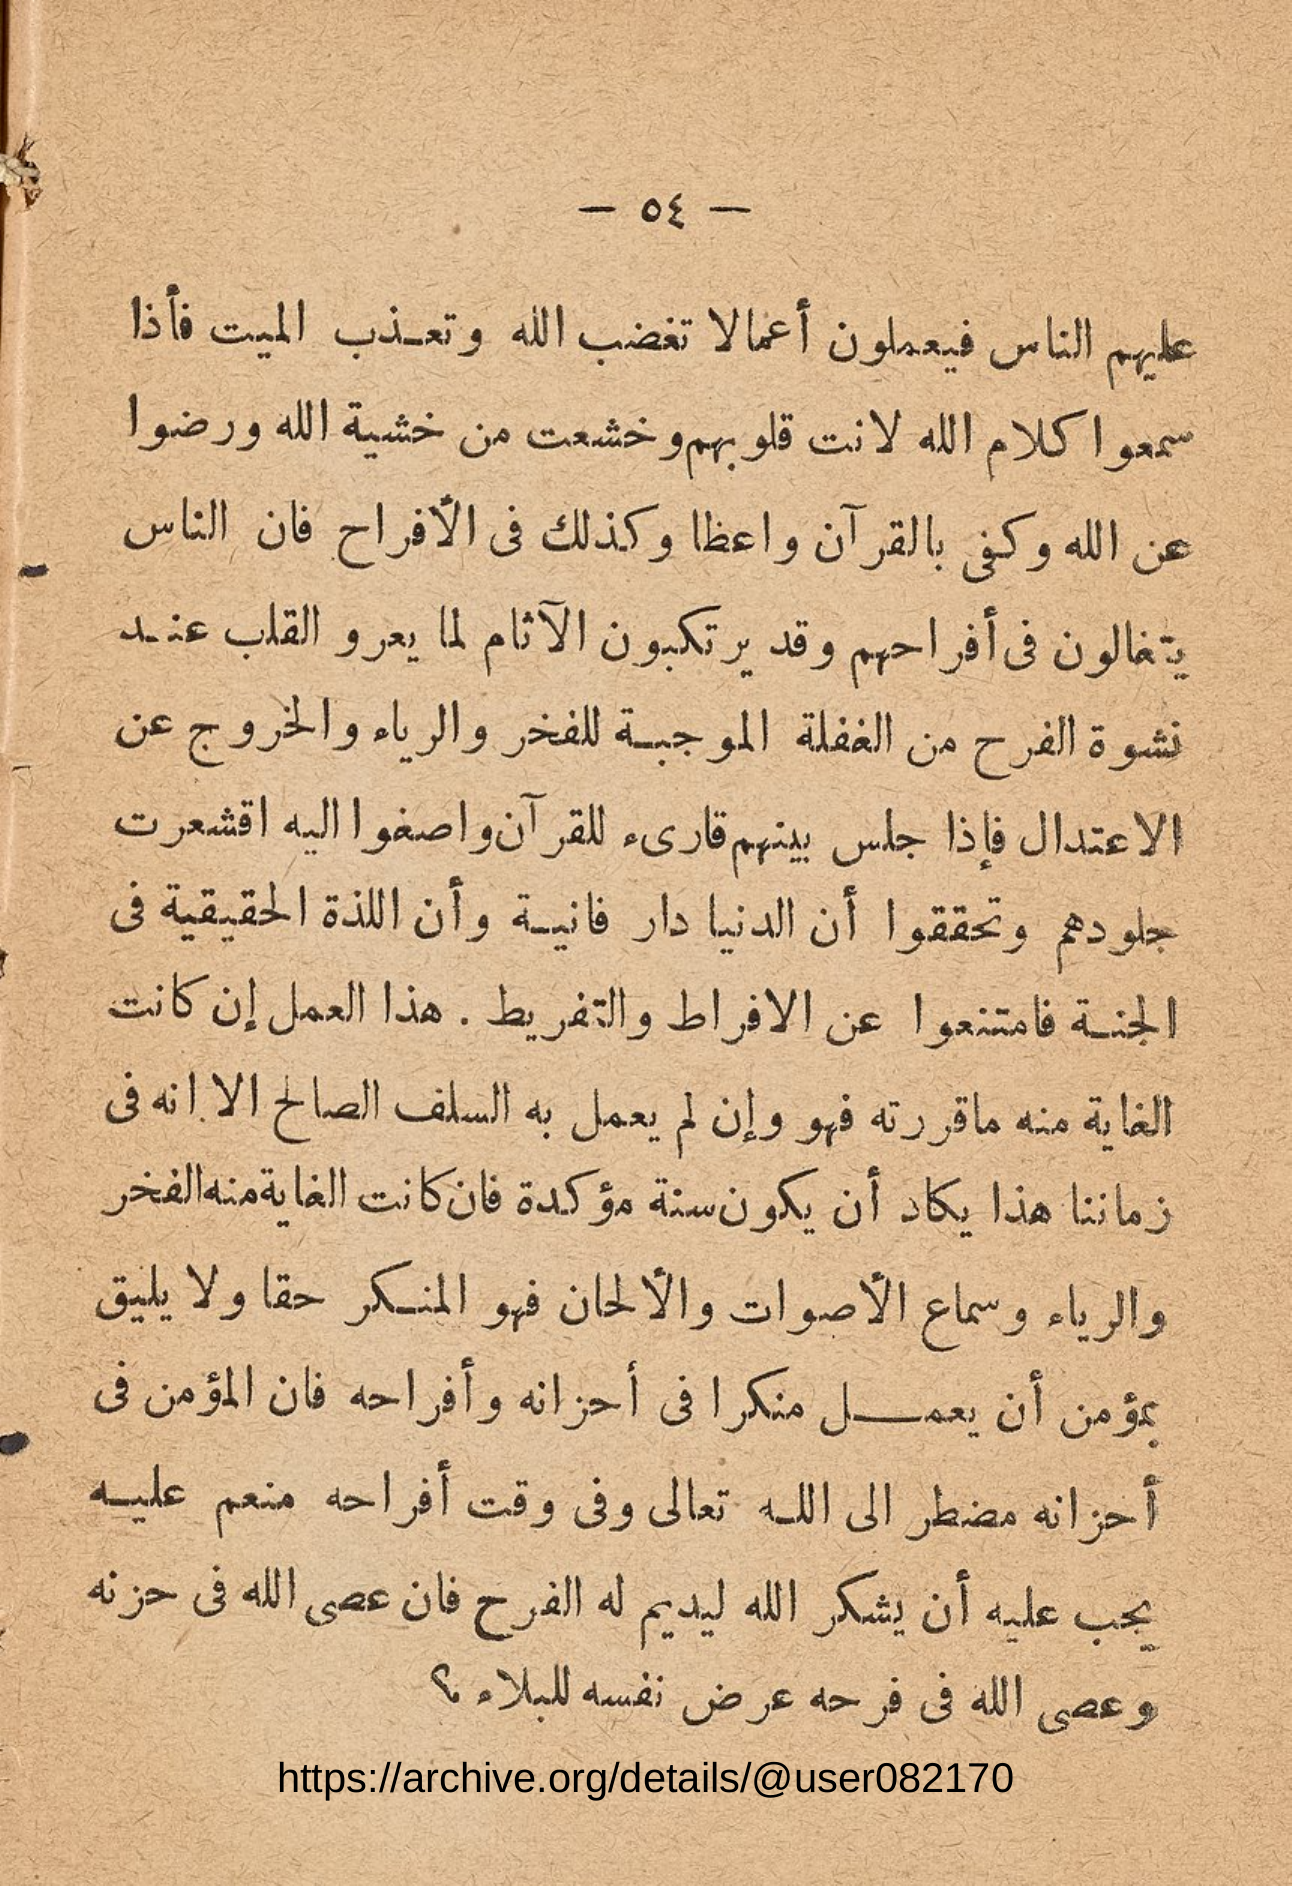 — ٥٤ —
عليهم الناس فيعملون أعمالا تغضب الله وتعذب الميت فأذا
سمعوا كلام الله لانت قلوبهم وخشعت من خشية الله ورضوا
عن الله وكفى بالقرآن واعظا وكذلك فى الأفراح فان الناس
يتغالون فى أفراحهم وقد يرتكبون الآثام لما يعرو القلب عند
نشوة الفرح من الغفلة الموجبة للفخر والرياء والخروج عن
الاعتدال فإذا جلس بينهم قارىء للقرآن واصغوا اليه اقشعرت
جلودهم وتحققوا أن الدنيا دار فانية وأن اللذة الحقيقية فى
الجنة فامتنعوا عن الافراط والتفريط . هذا العمل إن كانت
الغاية منه ماقررته فهو وإن لم يعمل به السلف الصالح الا انه فى
زماننا هذا يكاد أن يكون سنة مؤكدة فان كانت الغاية منه الفخر
والرياء وسماع الأصوات والألحان فهو المنكر حقا ولا يليق
بمؤمن أن يعمل منكرا فى أحزانه وأفراحه فان المؤمن فى
أحزانه مضطر الى الله تعالى وفى وقت أفراحه منعم عليه
يجب عليه أن يشكر الله ليديم له الفرح فان عصى الله فى حزنه
وعصى الله فى فرحه عرض نفسه للبلاء ؟
https://archive.org/details/@user082170